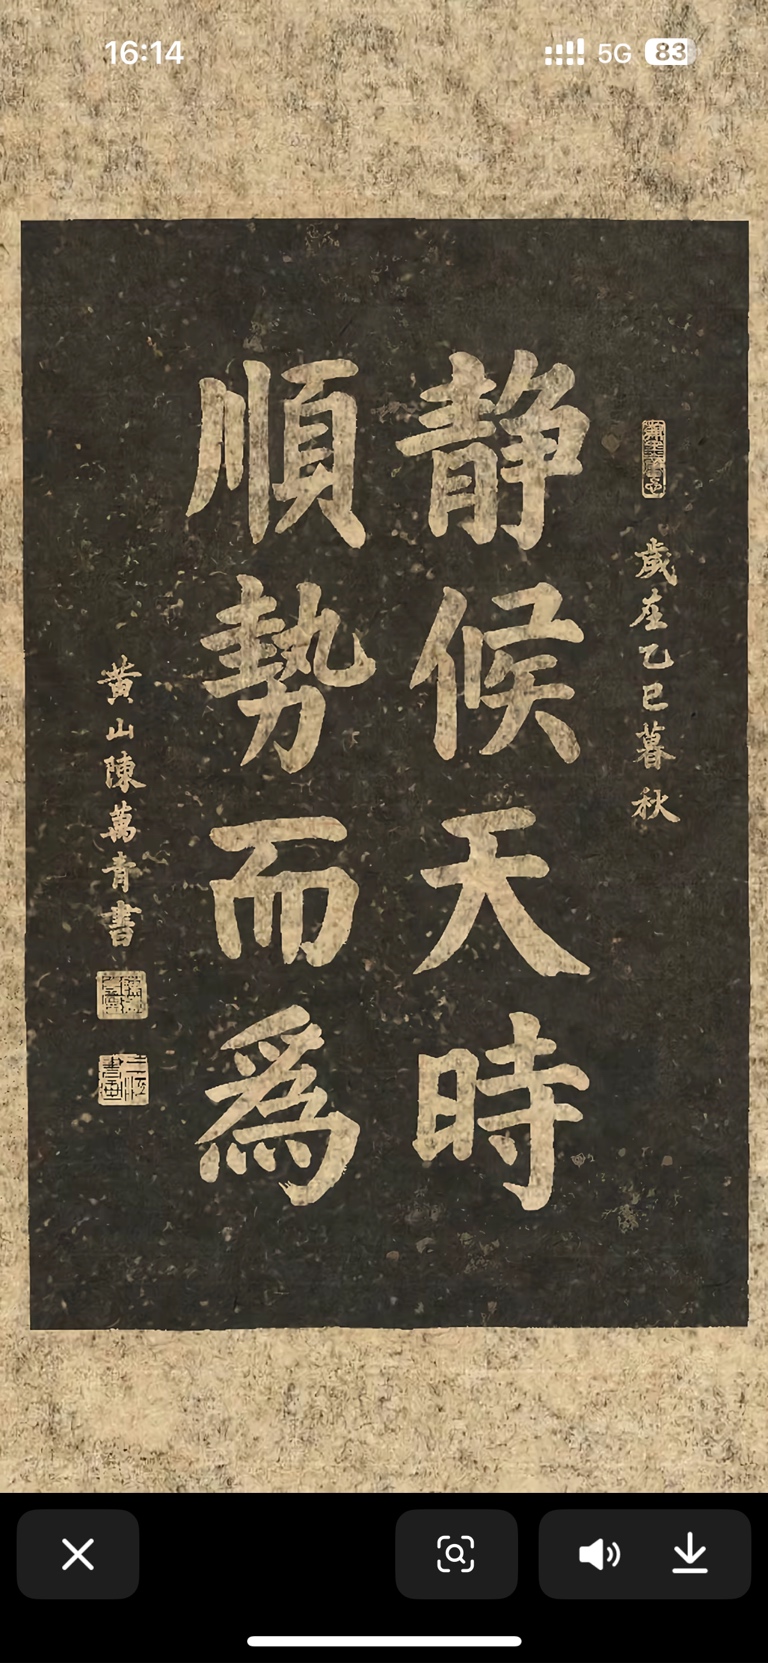 16:14
5G
83
歲在乙巳暮秋
静候天時
順勢而爲
黄山陳萬青書